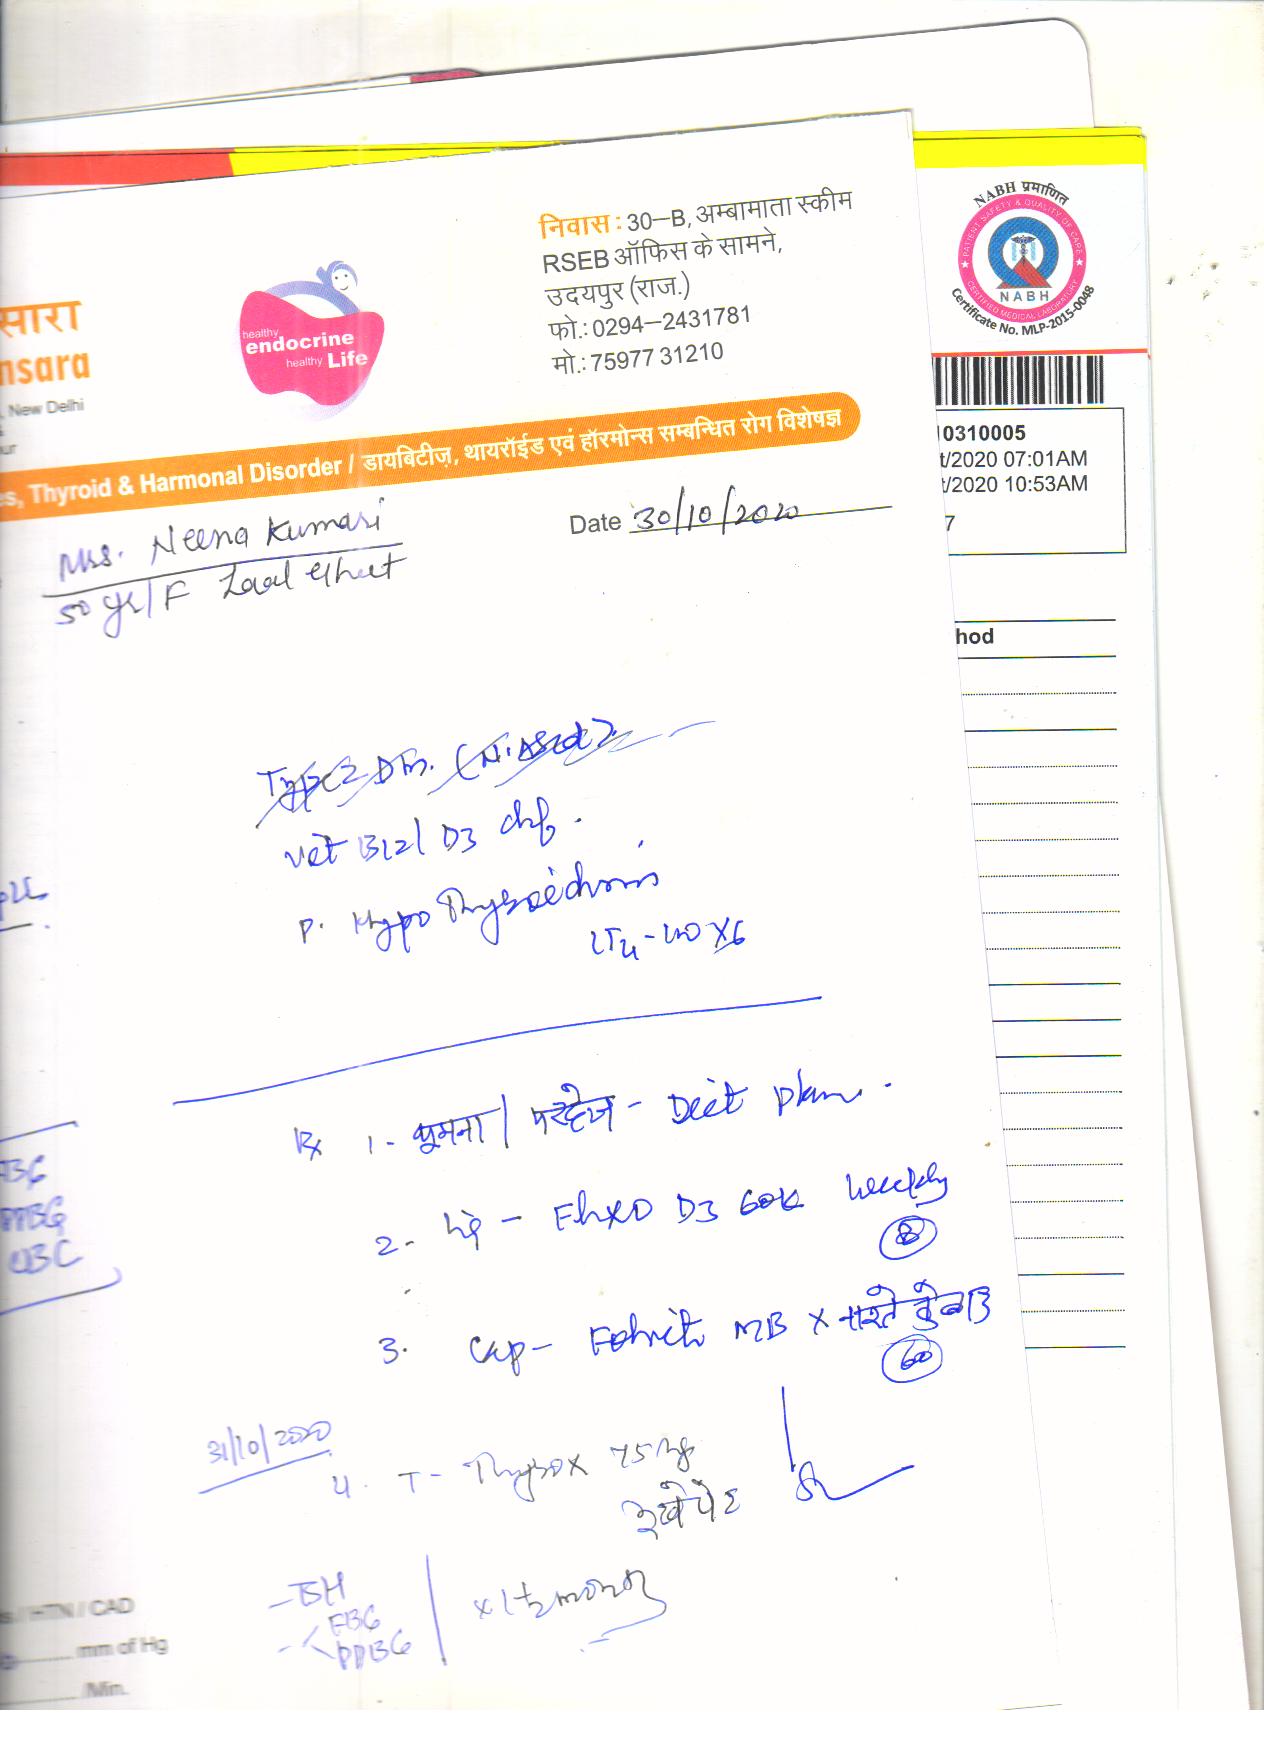 सारा
nsara
, New Delhi
ur
healthy
endocrine
healthy Life
निवास : 30–B, अम्बामाता स्कीम
RSEB ऑफिस के सामने,
उदयपुर (राज.)
फो.: 0294–2431781
मो.: 75977 31210
es, Thyroid & Harmonal Disorder / डायबिटीज़, थायरॉईड एवं हॉरमोन्स सम्बन्धित रोग विशेषज्ञ
NABH प्रमाणित
PATIENT SAFETY & QUALITY OF CARE
NABH
CERTIFIED MEDICAL LABORATORY
Certificate No. MLP-2015-0048
10310005
t/2020 07:01AM
t/2020 10:53AM
7
hod
Date 30/10/2020
Mrs. Neena Kumari
50 yr/F
Type 2 Dm.
vit B12/ D3
P. Hypo Thyroidism
LT4
Rx 1- घूमना / परहेज - Diet plan.
2- D3 60K weekly
8
3. Cap- MB X
60
31/10/2020
4. T- Thyrox 75
- TSH
FBG
PPBG
BG
PPBG
s / HTN / CAD
mm of Hg
/Min.